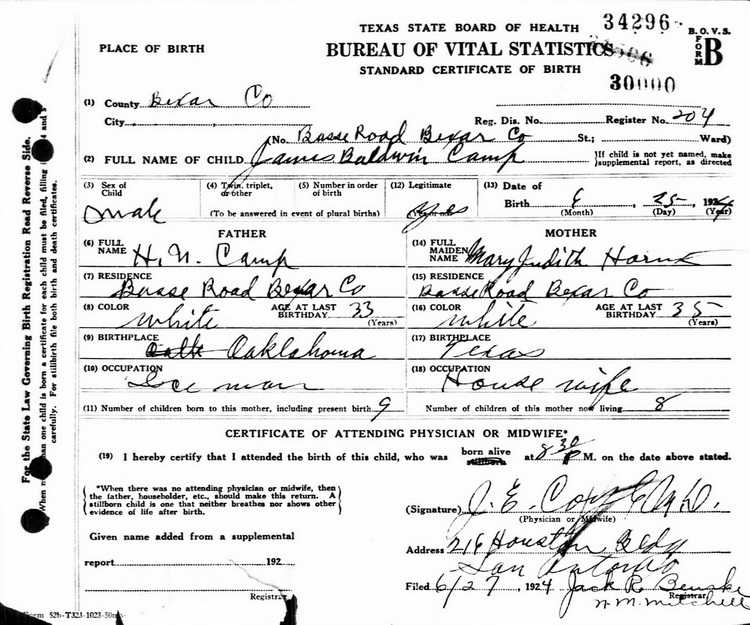 TEXAS STATE BOARD OF HEALTH
34296
B. O. V. S.
FORM B
PLACE OF BIRTH
BUREAU OF VITAL STATISTICS
STANDARD CERTIFICATE OF BIRTH
30000
(1) County Bexar Co
City
Reg. Dis. No.
Register No. 204
(No. Basse Road Bexar Co St.; Ward)
(2) FULL NAME OF CHILD James Baldwin Camp
If child is not yet named, make supplemental report, as directed
(3) Sex of Child
male
(4) Twin, triplet, or other
(5) Number in order of birth
(To be answered in event of plural births)
(12) Legitimate
yes
(Yes or no)
(13) Date of Birth 6 25 1924
(Month) (Day) (Year)
FATHER
(6) FULL NAME H. N. Camp
(7) RESIDENCE
Basse Road Bexar Co
(8) COLOR white
AGE AT LAST BIRTHDAY 33
(Years)
(9) BIRTHPLACE
Oaklahoma
(10) OCCUPATION
Ice man
(11) Number of children born to this mother, including present birth 9
MOTHER
(14) FULL MAIDEN NAME Mary Judith
(15) RESIDENCE
Basse Road Bexar Co
(16) COLOR white
AGE AT LAST BIRTHDAY 35
(Years)
(17) BIRTHPLACE
Texas
(18) OCCUPATION
House wife
Number of children of this mother now living 8
CERTIFICATE OF ATTENDING PHYSICIAN OR MIDWIFE*
(19) I hereby certify that I attended the birth of this child, who was born alive stillborn at 8 30 P M. on the date above stated.
*When there was no attending physician or midwife, then
the father, householder, etc., should make this return. A
stillborn child is one that neither breathes nor shows other
evidence of life after birth.
(Signature) J. E. M.D.
(Physician or Midwife)
Given name added from a supplemental
report 192
Registrar
Address 216 Houston Bldg
San Antonio
Filed 6/27 1924 Jack R.
Registrar
N. M. Mitchell
Form 52b-T323-1023-50m
For the State Law Governing Birth Registration Read Reverse Side.
than one child is born a certificate for each child must be filed, filling
carefully. For stillbirth file both birth and death certificates.